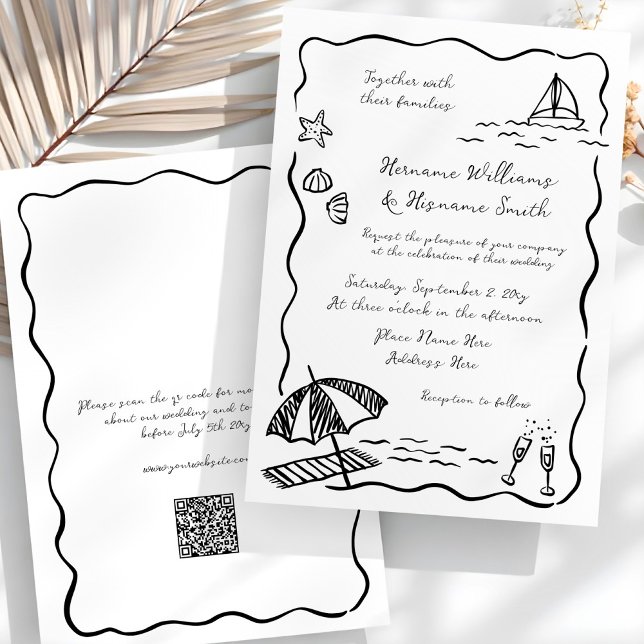 Together with
their families
Hername Williams
& Hisname Smith
Request the pleasure of your company
at the celebration of their wedding
Saturday, September 2, 20xy
At three o'clock in the afternoon
Place Name Here
Address Here
Reception to follow
Please scan the qr code for
about our wedding and
before July 5th
www.yourwebsite.